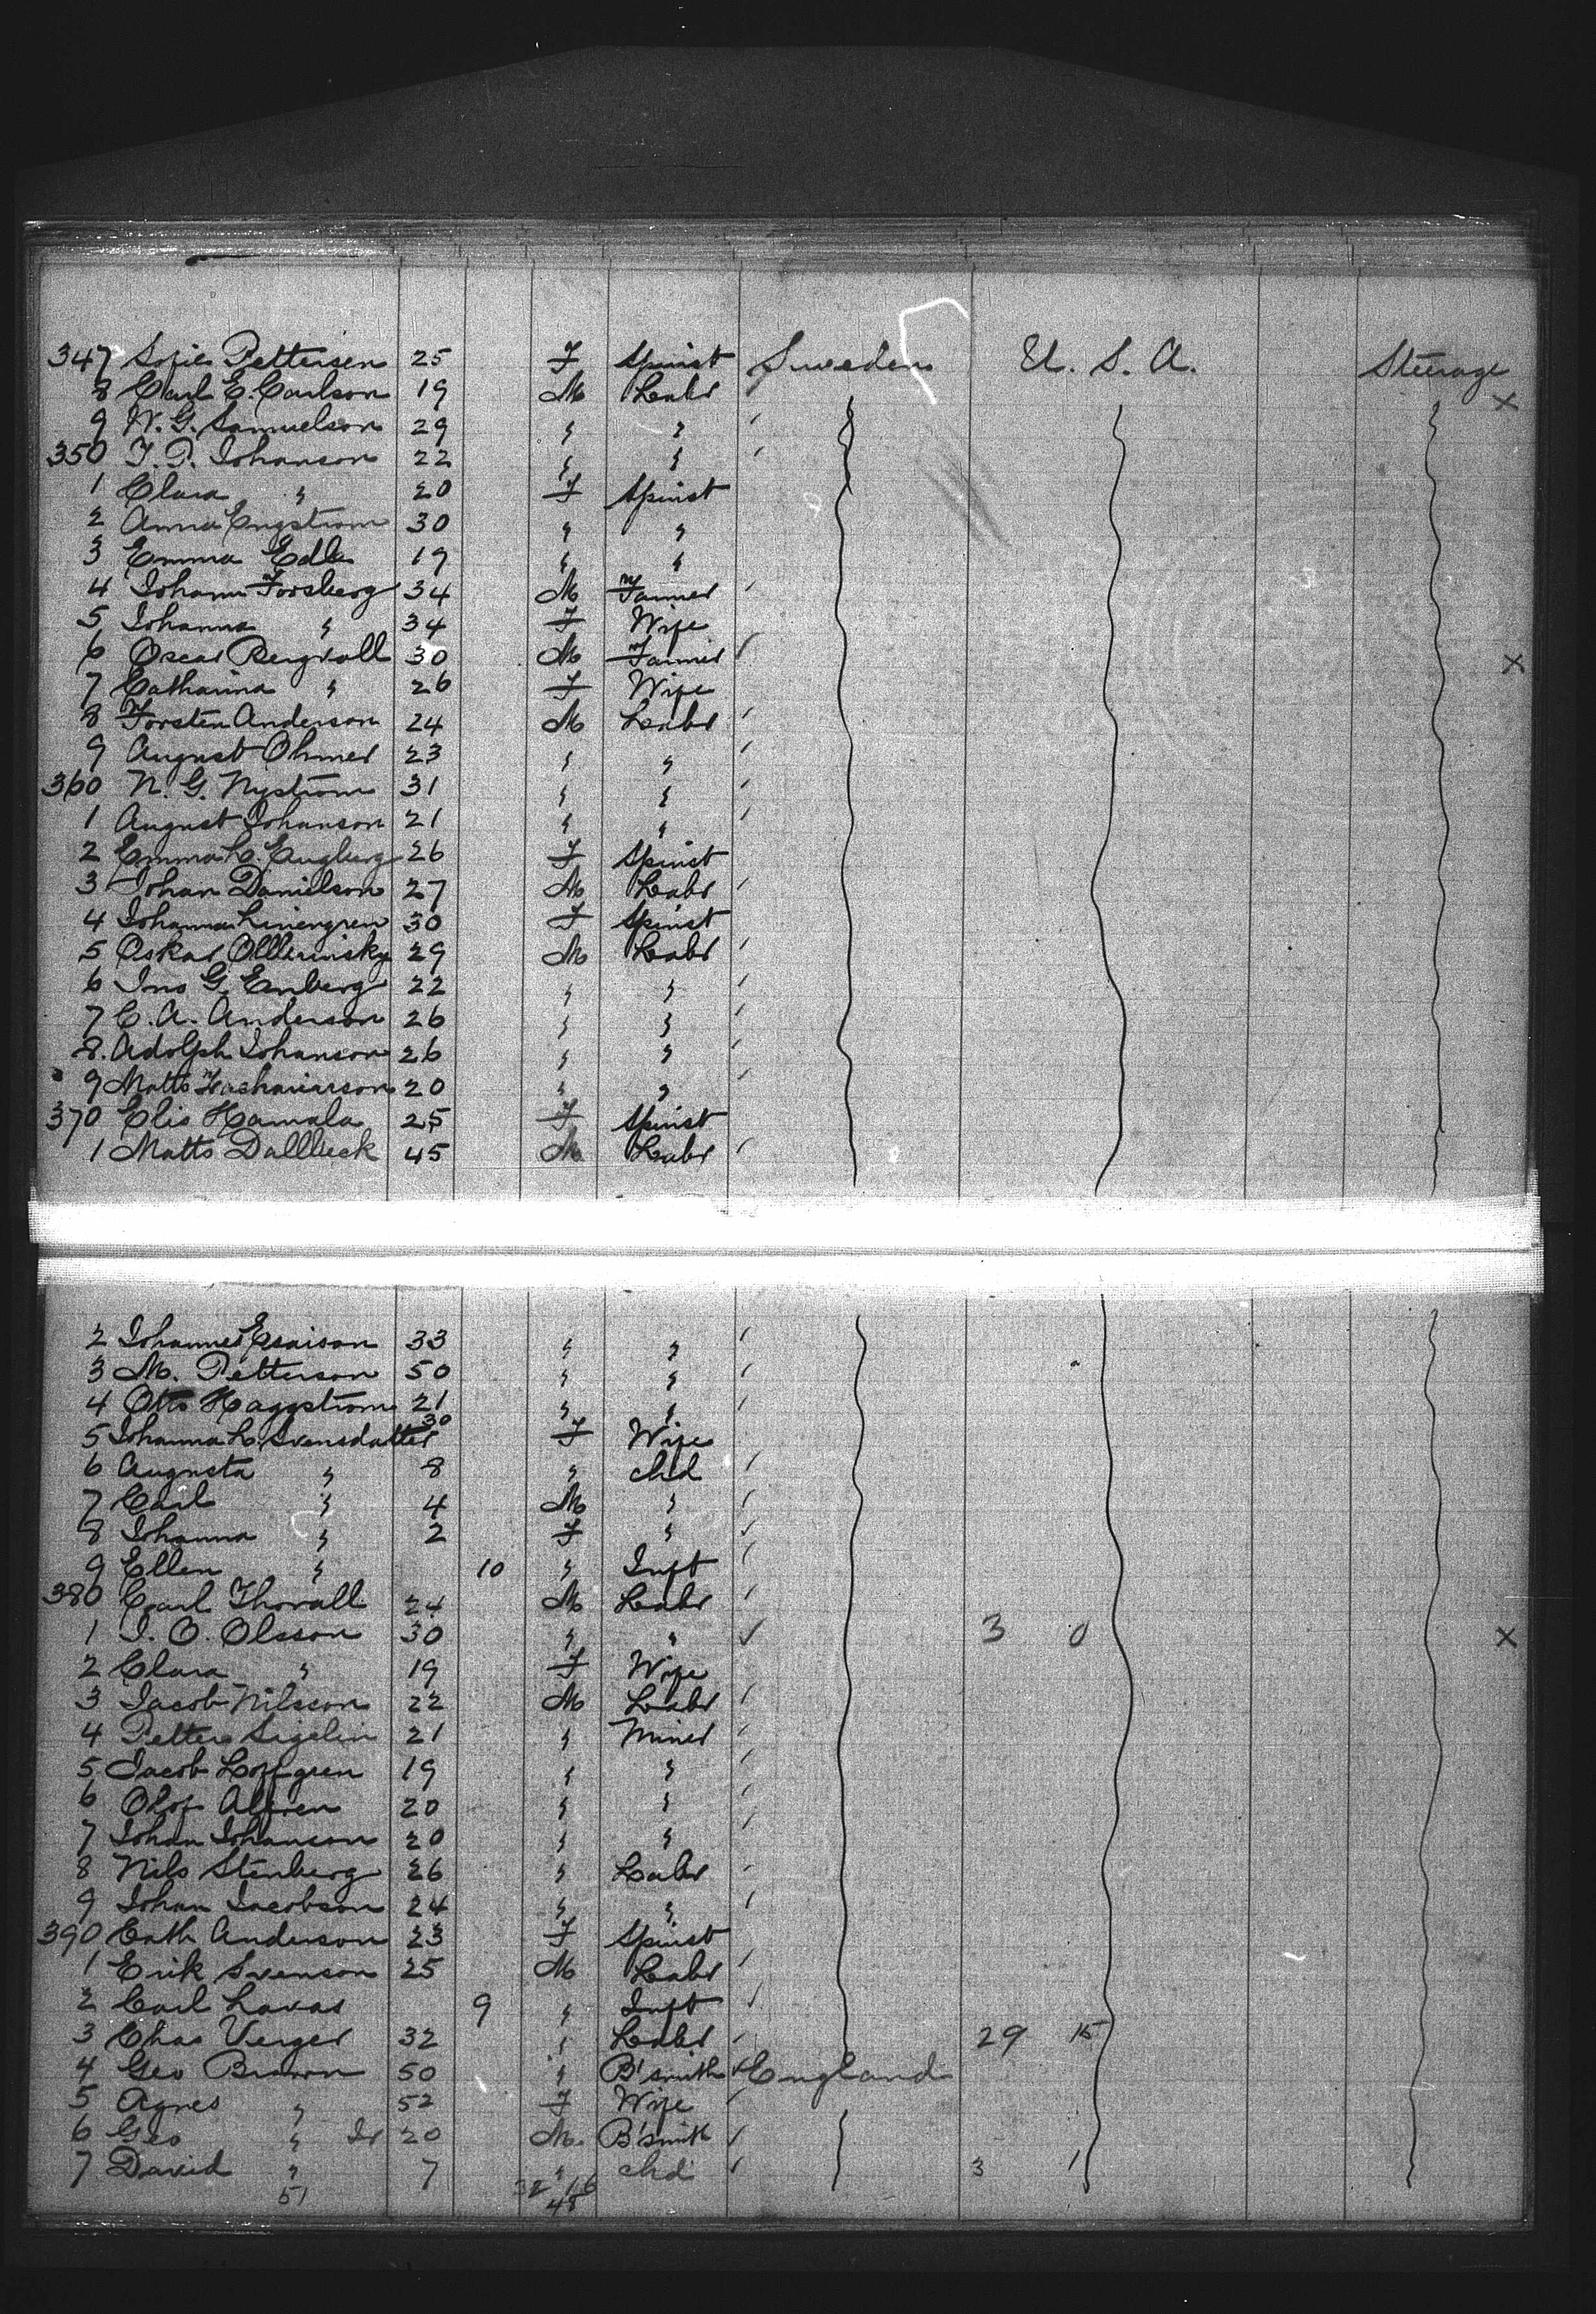 347 Sofie Pettersen 25 F Spinst Sweden U. S. A. Steerage
8 Carl E. Carlson 19 M Labr
9 N. G. Samuelson 29 " "
350 J. P. Johanson 22 " "
1 Clara " 20 F Spinst
2 Anna Engstrom 30 " "
3 Emma Edla 19 " "
4 Johann Forsberg 34 M Farmer
5 Johanna " 34 F Wife
6 Oscar Bergvall 30 M Farmer
7 Catharina " 26 F Wife
8 Torsten Anderson 24 M Labr
9 August Ohmer 23 " "
360 N. G. Nystrom 31 " "
1 August Johanson 21 " "
2 Emma L. Engberg 26 F Spinst
3 Johan Danielson 27 M Labr
4 Johanna 30 F Spinst
5 Oskar 29 M Labr
6 Jno G. Enberg 22 " "
7 C. A. Anderson 26 " "
8. Adolph Johanson 26 " "
9 Matts Zachariarson 20 " "
370 Elis Hamala 25 F Spinst
1 Matts Dallbeck 45 M Labr
2 Johannes Esaison 33 " "
3 M. Petterson 50 " "
4 Otto Haggstrom 21 " "
5 Johanna L. Svensdatter 30 F Wife
6 Augusta " 8 " chd
7 Carl " 4 M "
8 Johanna " 2 F "
9 Ellen " 10 " Inft
380 Carl Thorall 24 M Labr
1 J. O. Olsson 30 " " 3 0
2 Clara " 19 F Wife
3 Jacob Nilsson 22 M Labr
4 Petter Sigelin 21 " Miner
5 Jacob Loffgren 19 " "
6 Olof Alfven 20 " "
7 Johan Johanson 20 " "
8 Nils Stenberg 26 " Labr
9 Johan Jacobson 24 " "
390 Cath Anderson 23 F Spinst
1 Erik Svenson 25 M Labr
2 Carl Lavas 9 " Inft
3 Chas Verger 32 " Labr 29 15
4 Geo Brown 50 " B'smith England
5 Agnes " 52 F Wife
6 Geo " Jr 20 M. B'smith
7 David " 7 " chd 3 1
51 32 16
48